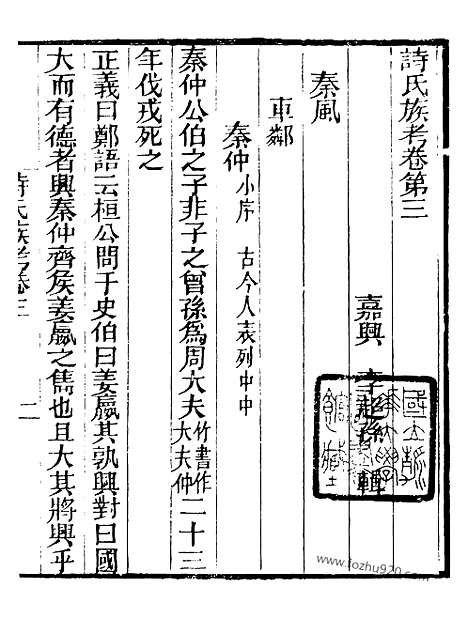 詩氏族考卷第三
嘉興 李超孫 輯
秦風
車鄰
秦仲 小序 古今人表列中中
秦仲公伯之子非子之曾孫爲周大夫竹書作大夫仲二十三
年伐戎死之
正義曰鄭語云桓公問于史伯曰姜嬴其孰興對曰國
大而有德者興秦仲齊侯姜嬴之雋也且大其將興乎
詩氏族考卷三
一
www.fozhu920.com